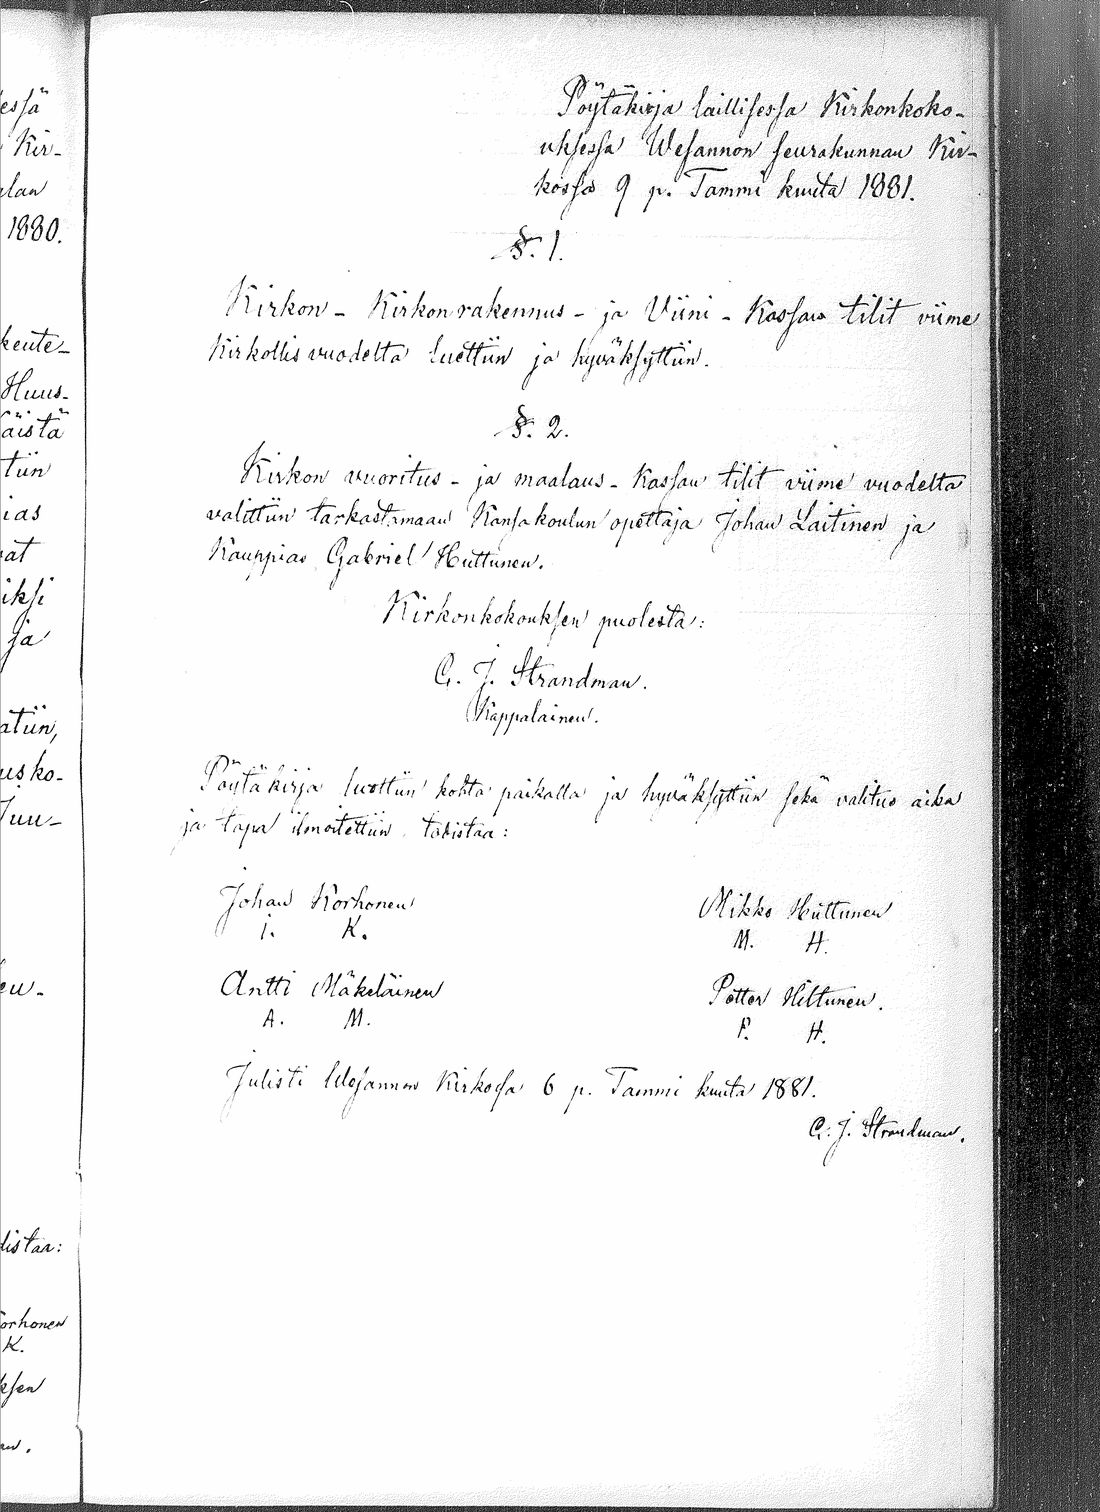 Pöytäkirja laillisessa Kirkonkoko-
uksessa Wesannon seurakunnan Kir-
kossa 9 p. Tammi kuuta 1881.
§. 1.
Kirkon - Kirkonrakennus - ja Viini - Kassan tilit viime
Kirkollis vuodelta luettiin ja hyväksyttiin.
§. 2.
Kirkon vuoritus - ja maalaus - Kassan tilit viime vuodelta
valittiin tarkastamaan Kansakoulun opettaja Johan Laitinen ja
Kauppias Gabriel Huttunen.
Kirkonkokouksen puolesta:
G. J. Strandman.
Kappalainen.
Pöytäkirja luettiin kohta paikalla ja hyväksyttiin sekä valitus aika
ja tapa ilmoitettiin todistaa:
Johan Korhonen
J. K.
Mikko Huttunen
M. H.
Antti Mäkeläinen
A. M.
Petter Hiltunen.
P. H.
Julisti Wesannon Kirkossa 6 p. Tammi kuuta 1881.
G. J. Strandman.
essä
Kir-
1880.
keute-
Huus-
äistä
tiin
ias
at
iksi
ja
atiin,
usko-
Juu-
eu-
distaa:
orhonen
K.
ksen